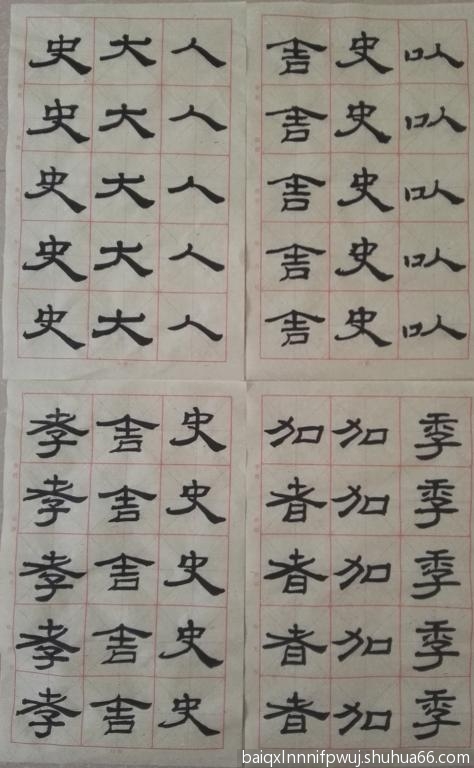 人人人人人
大大大大大
史史史史史
以以以以以
史史史史史
舍舍舍舍舍
史史史史史
舍舍舍舍舍
孝孝孝孝孝
季季季季季
加加加加加
加者者者者
baiqxlnnnifpwuj.shuhua66.com